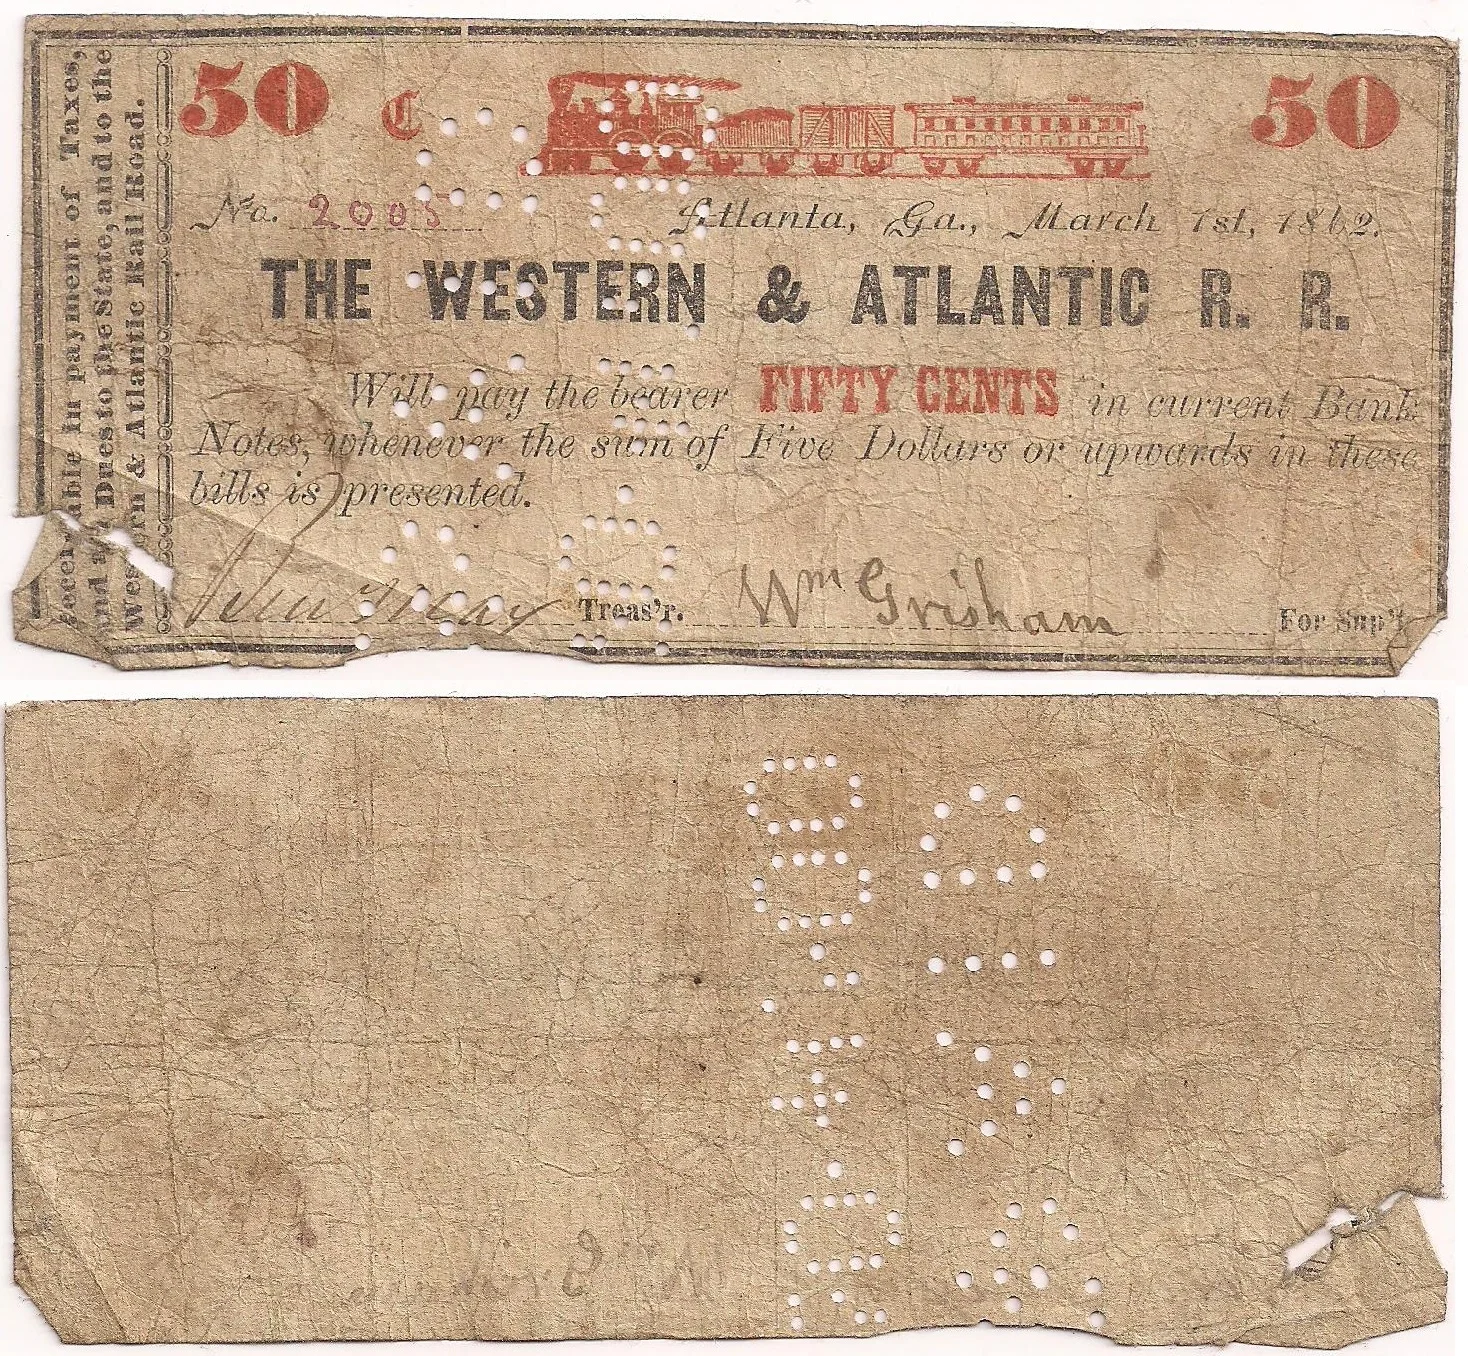 50 C 50
No. 2005 Atlanta, Ga., March 1st, 1862.
THE WESTERN & ATLANTIC R. R.
Will pay the bearer FIFTY CENTS in current Bank
Notes, whenever the sum of Five Dollars or upwards in these
bills is presented.
Treas'r. Wm Grisham For Sup't
Receivable in payment of Taxes,
and all Dues to the State, and to the
Western & Atlantic Rail Road.